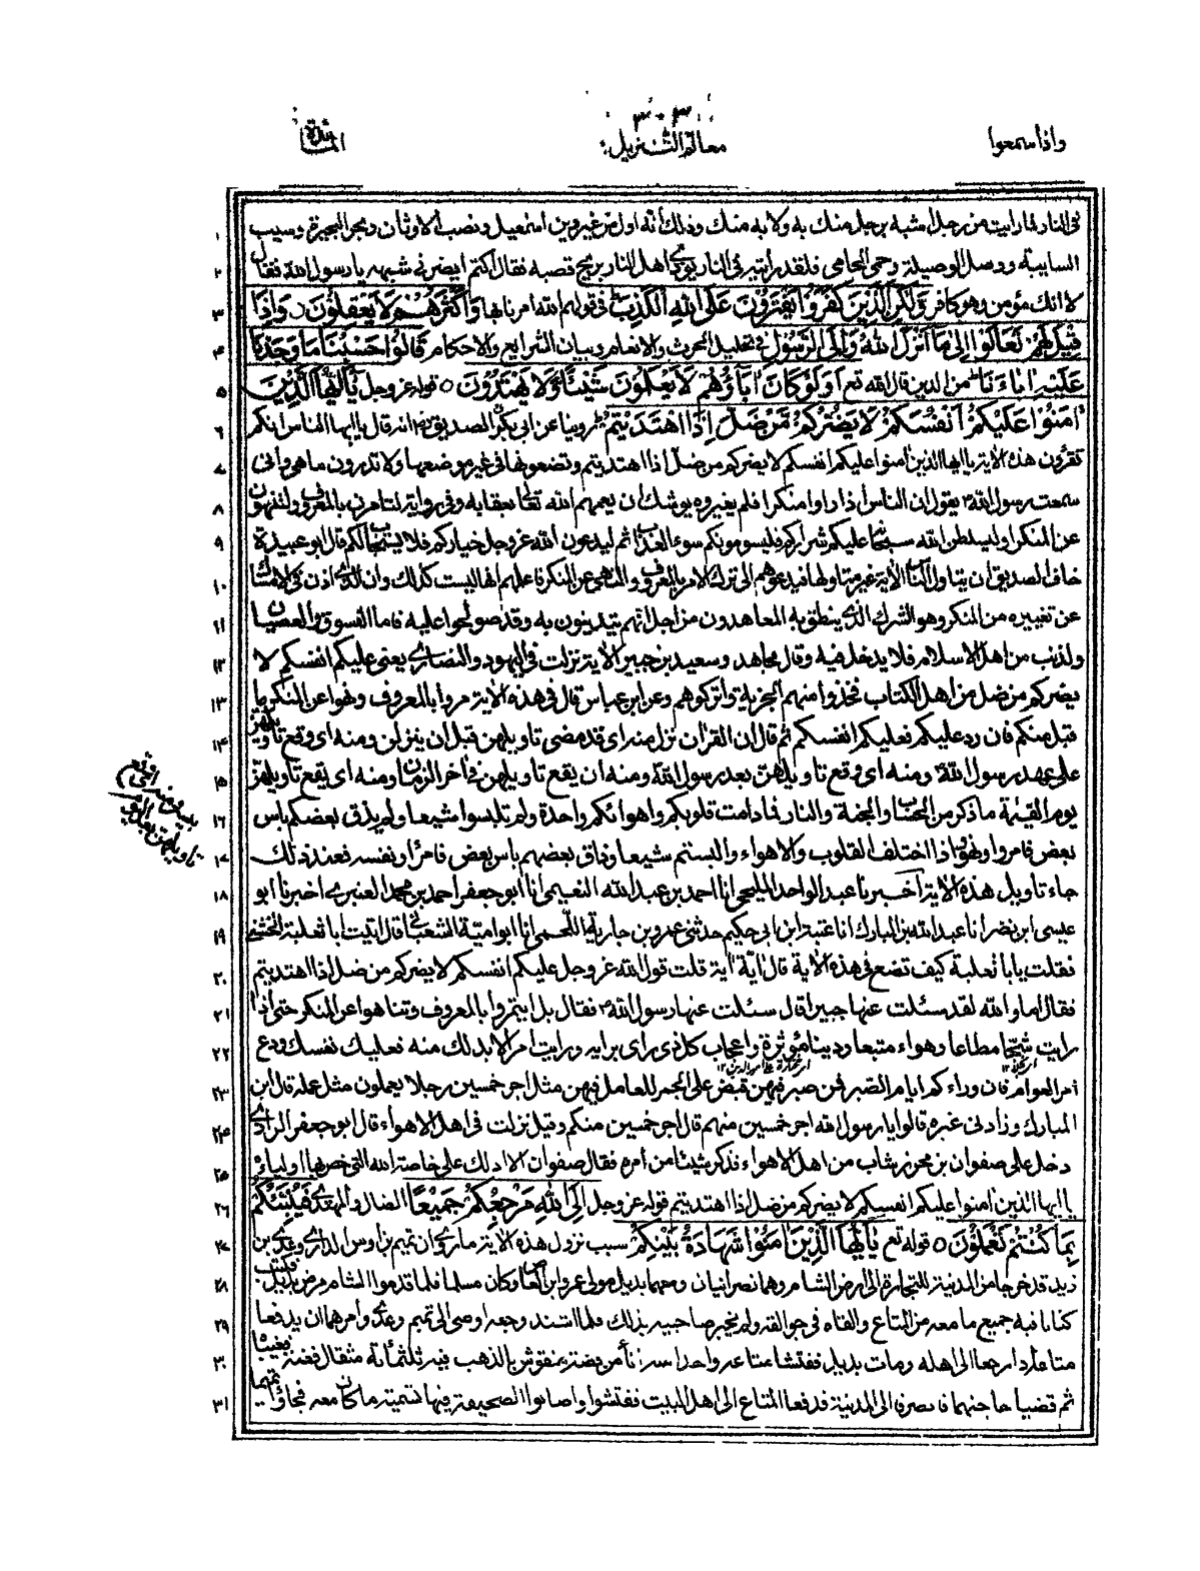 واذا سمعوا
٣٠٣
معالم التنزيل
المائدة
فى النار فما رايت من رجل اشبه برجل منك به ولا به منك وذلك أنه اول من غير دين اسمعيل ونصب الاوثان وبحر البحيرة وسيب
السايبة ووصل الوصيلة وحمى الحامى فلقد رايته فى النار يوذى اهل النار بريح قصبه فقال اكثم ايضرنى شبهه يا رسول الله فقال
لا انك مؤمن وهو كافر وَلٰكِنَّ الَّذِيْنَ كَفَرُوْا يَفْتَرُوْنَ عَلَى اللهِ الْكَذِبَ فى قولهم الله امرنا بها وَاَكْثَرُهُمْ لَا يَعْقِلُوْنَ وَاِذَا
قِيْلَ لَهُمْ تَعَالَوْا اِلٰى مَا اَنْزَلَ اللهُ وَاِلَى الرَّسُوْلِ فى تحليل الحرث والانعام وبيان الشرايع والاحكام قَالُوْا حَسْبُنَا مَا وَجَدْنَا
عَلَيْهِ اٰبَاءَنَا من الدين قال الله تع اَوَلَوْ كَانَ اٰبَاؤُهُمْ لَا يَعْلَمُوْنَ شَيْئًا وَّلَا يَهْتَدُوْنَ ٥ قوله عز وجل يٰاَيُّهَا الَّذِيْنَ
اٰمَنُوْا عَلَيْكُمْ اَنْفُسَكُمْ لَا يَضُرُّكُمْ مَّنْ ضَلَّ اِذَا اهْتَدَيْتُمْ روينا عن ابى بكر الصديق انه قال يا ايها الناس انكم
تقرؤن هذه الاية يا ايها الذين امنوا عليكم انفسكم لا يضركم من ضل اذا اهتديتم وتضعونها فى غير موضعها ولا تدرون ما هى وانى
سمعت رسول الله يقول ان الناس اذا راوا منكرا فلم يغيروه يوشك ان يعمهم الله تعا بعقابه وفى رواية لتامرن بالمعروف ولتنهون
عن المنكر او ليسلطن الله سبحانه عليكم شراركم فليسومونكم سوء العذاب ثم ليدعون الله عز وجل خياركم فلا يستجاب لكم قال ابو عبيدة
خاف الصديق ان يتاول الناس الاية غير متاولها فيدعوهم الى ترك الامر بالمعروف والنهى عن المنكر فاعلمهم انها ليست كذلك وان الذى اذن فى الامساك
عن تغييره من المنكر وهو الشرك الذى ينطق به المعاهدون من اجل انهم يتدينون به وقد صولحوا عليه فاما الفسوق والعصيان
ولذنب من اهل الاسلام فلا يدخل فيه وقال مجاهد وسعيد بن جبير الاية نزلت فى اليهود والنصارى يعنى عليكم انفسكم لا
يضركم من ضل من اهل الكتاب فخذوا منهم الجزية واتركوهم وعن ابن عباس قال فى هذه الاية مروا بالمعروف ونهوا عن المنكر ما
قبل منكم فان رد عليكم فعليكم انفسكم ثم قال ان القران نزل منه اى قد مضى تاويلهن قبل ان ينزلن ومنه اى وقع تاويلهن
على عهد رسول الله ومنه اى وقع تاويلهن بعد رسول الله ومنه ان يقع تاويلهن فى اخر الزمان ومنه اى يقع تاويلهن
يوم القيمة ما ذكر من الحساب والجنة والنار فما دامت قلوبكم واهوائكم واحدة ولم تلبسوا شيعا ولم يذق بعضكم باس
بعض فامروا ونهوا اذا اختلف القلوب والاهواء والبستم شيعا وذاق بعضهم باس بعض فامرؤ ونفسه فعند ذلك
جاء تاويل هذه الاية اخبرنا عبد الواحد المليحى انا احمد بن عبد الله النعيمى انا ابو جعفر احمد بن محمد العنبرى اخبرنا ابو
عيسى ابن نضر انا عبد الله بن المبارك انا عتبة ابن ابى حكيم حدثنى عمرو بن جارية اللخمى انا ابو امية الشعبانى قال اتيت ابا ثعلبة الخشنى
فقلت يابا ثعلبة كيف تضع فى هذه الاية قال اية اية قلت قول الله عز وجل عليكم انفسكم لا يضركم من ضل اذا اهتديتم
فقال اما والله لقد سئلت عنها خبيرا قال سئلت عنها رسول الله فقال بل ايتمروا بالمعروف وتناهوا عن المنكر حتى اذا
رايت شحا مطاعا وهواء متبعا ودينا مؤثرة واعجاب كل ذى راى برايه ورايت امر لا بد لك منه فعليك نفسك ودع
امر العوام فان وراءكم ايام الصبر فمن صبر فيهن قبض على الجمر للعامل فيهن مثل اجر خمسين رجلا يعملون مثل عمله قال ابن
المبارك وزادنى غيره قالوا يا رسول الله اجر خمسين منهم قال اجر خمسين منكم وقيل نزلت فى اهل الاهواء قال ابو جعفر الرازى
دخل على صفوان بن محرز شاب من اهل الاهواء فذكر شيئا من امره فقال صفوان الا ادلك على خاصة الله التى خص بها اولياءه
يا ايها الذين امنوا عليكم انفسكم لا يضركم من ضل اذا اهتديتم قوله عز وجل اِلَى اللهِ مَرْجِعُكُمْ جَمِيْعًا الضال والمهتدى فَيُنَبِّئُكُمْ
بِمَا كُنْتُمْ تَعْمَلُوْنَ ٥ قوله تع يٰاَيُّهَا الَّذِيْنَ اٰمَنُوْا شَهَادَةُ بَيْنِكُمْ سبب نزول هذه الاية ما روى ان تميم بن اوس الدارى وعدى بن
زيد قد خرجا من المدينة للتجارة الى ارض الشام وهما نصرانيان ومعهما بديل مولى عمرو ابن العاص وكان مسلما فلما قدموا الشام مرض بديل فكتب
كتابا فيه جميع ما معه من المتاع والقاه فى جوالقه ولم يخبر صاحبيه بذلك فلما اشتد وجعه اوصى الى تميم وعدى وامرهما ان يدفعا
متاعه اذا رجعا الى اهله ومات بديل ففتشا متاعه واخذا منه اناء من فضة منقوش بالذهب فيه ثلثمائة مثقال فضة فغيباه
ثم قضيا حاجتهما فانصرفا الى المدينة فدفعا المتاع الى اهل البيت ففتشوا واصابوا الصحيفة فيها تسمية ما كان معه فجاؤا تميما